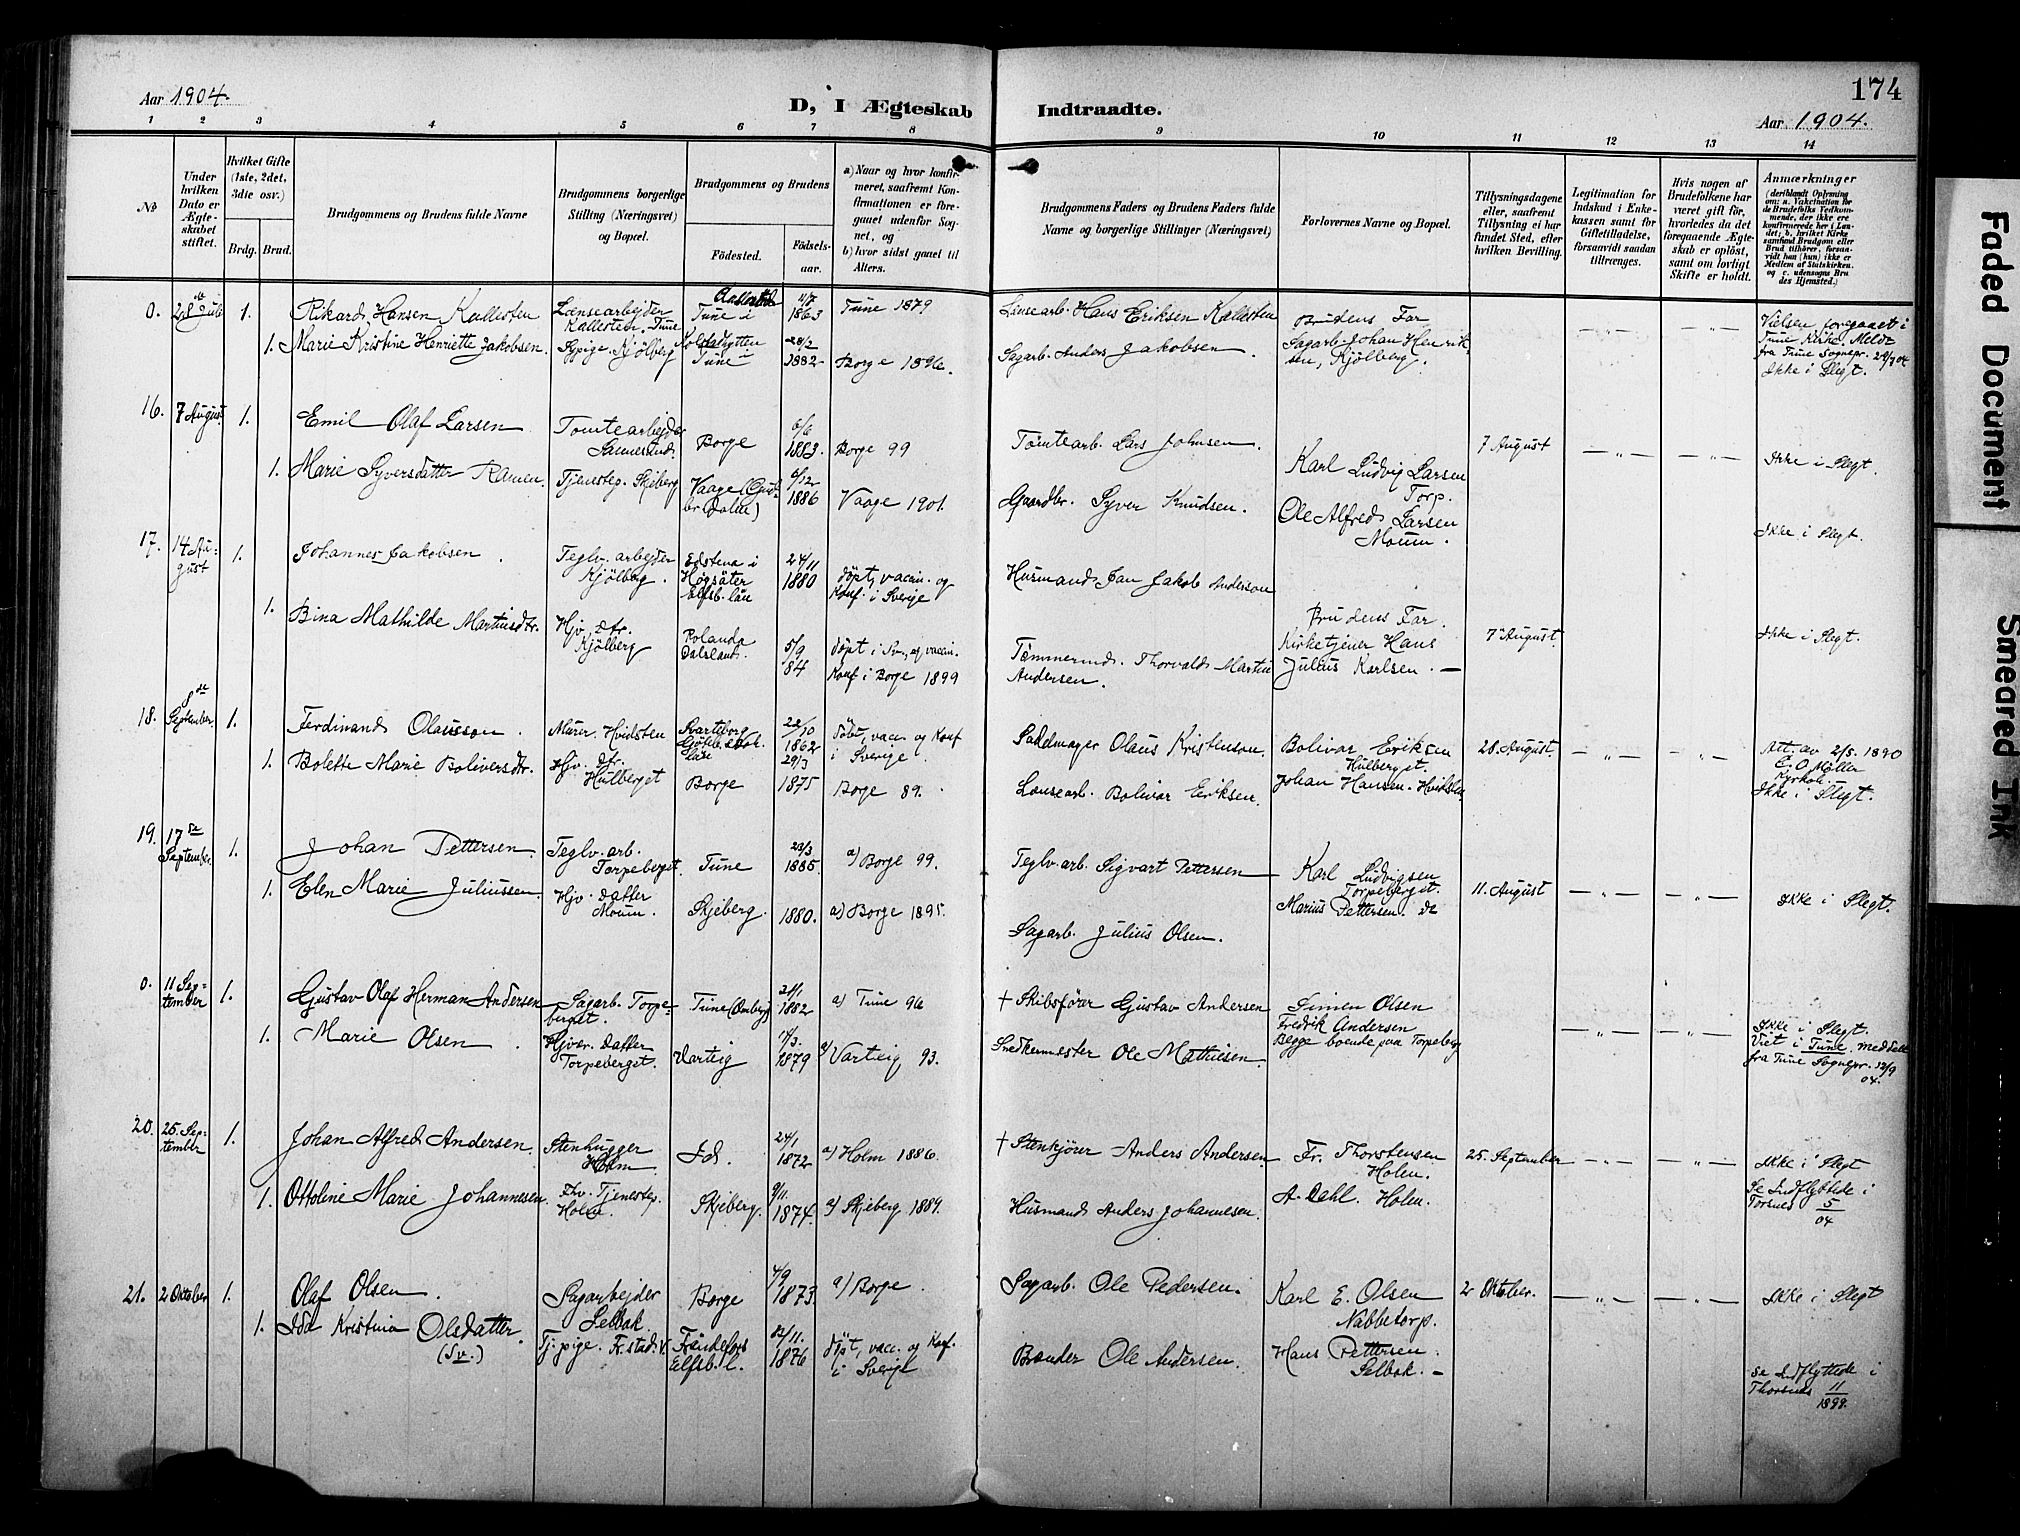 Aar 1904.
D, I Ægteskab
Indtraadte.
174
Aar 1904.
1 2 3 4 5 6 7 8 9 10 11 12 13 14
No
Under hvilken Dato er Ægteskabet stiftet.
Hvilket Gifte (1ste, 2det, 3die osv.)
Brdg. Brud.
Brudgommens og Brudens fulde Navne
Brudgommens borgerlige Stilling (Næringsvei) og Bopæl.
Brudgommens og Brudens
Fødested.
Fødselsaar.
a) Naar og hvor konfirmeret, saafremt Konfirmationen er foregaaet udenfor Sognet, og
b) hvor sidst gaaet til Alters.
Brudgommens Faders og Brudens Faders fulde Navne og borgerlige Stillinger (Næringsvei)
Forlovernes Navne og Bopæl.
Tillysningsdagene eller, saafremt Tillysning ei har fundet Sted, efter hvilken Bevilling.
Legitimation for Indskud i Enkekassen samt for Giftetilladelse, forsaavidt saadan tiltrænges.
Hvis nogen af Brudefolkene har været gift før, hvorledes da det foregaaende Ægteskab er opløst, samt om lovligt Skifte er holdt.
Anmærkninger
(deriblandt Oplysning om: a. Vakcination for de Brudefolks Vedkommende, der ikke ere konfirmerede her i Landet; b. hvilket Kirkesamfund Brudgom eller Brud tilhører, forsaavidt han (hun) ikke er Medlem af Statskirken, og c. udensogns Brudes Hjemsted.)
0. 28de Juli 1. Rikard Hansen Kallesten Lænsearbejder Kallesten, Tune Tune i 11/7 1863 Tune 1879 Lænsearb. Hans Eriksen Kallesten Brudens Far Vielsen foregaaet i Tune Kirke. Meldt fra Tune Sognepr. 29/7 04
1. Marie Kristine Henriette Jakobsen. Sypige. Kjølberg Tune i 28/2 1882 Borge 1896. Sagarb. Anders Jakobsen. Sagarb. Johan Henriksen, Kjølberg. Ikke i Slegt.
16. 7 August 1. Emil Olaf Larsen. Tomtearbejder Sannesund. Borge 6/6 1883. Borge 99 Tomtearb. Lars Johnsen. Karl Ludvig Larsen Torp. 7 August Ikke i Slegt.
1. Marie Syversdatter Ramen. Tjenesteg. Skjeberg Vaage (Gudbr. dalen) 6/12 1886 Vaage 1901. Gaardbr. Syver Knudsen. Ole Alfred Larsen Moum.
17. 14 August 1. Johannes Jakobsen. Teglv. arbejder Kjölberg. Edstena i Høgsäter Elfsb. län 24/11 1880 døpt, vaccin. og Konf. i Sverige Husmand Jan Jakob Anderson Ikke i Slegt.
1. Bina Mathilde Martinsdtr. Hjv. dtr. Kjølberg Rolanda Dalsland. 5/9 84 døpt i Sv., og vaccin. Konf i Borge 1899 Tømmermd. Thorvald Martin Andersen. Brudens Far. Kirketjener Hans Julius Karlsen. 7 August Ikke i Slegt.
18. 8de September 1. Ferdinand Olausson. Murer. Hvidsten Svarteborg Gøteb. Län 22/10 1862 Døbt, vacc. og Konf i Sverige. Sadelmager Olaus Kristenson. Bolivar Eriksen Hulberget. 28. August. Att. av 2/5. 1890 E. O. Møller Kyrkoh. Ikke i Slegt.
1. Bolette Marie Boliversdtr. Hjv. dtr. Hulberget Borge 29/3 1875 Borge 89. Lænsearb. Bolivar Eriksen. Johan Hansen. Hvidsten
19. 17de September. 1. Johan Pettersen. Teglv. arb. Torpeberget. Tune 23/3 1885. a) Borge 99. Teglv. arb. Sigvart Pettersen Karl Ludvigsen Torpeberget. 11. August Ikke i Slegt.
1. Elen Marie Juliussen. Hjv. datter Moum. Skjeberg. 1880. a) Borge 1895. Sagarb. Julius Olsen. Marius Pettersen. do
0. 11 September 1. Gustav Olaf Herman Andersen Sagarb. Torpeberget. Tune 21/1 1882 a) Tune 96 † Skibsfører Gustav Andersen Simen Olsen Ikke i Slegt.
1. Marie Olsen. Hjvær. datter Torpeberget. Varteig 17/3. 1879 a) Varteig 93. Snedkermester Ole Mathiesen Fredrik Andersen Begge boende paa Torpeberg Viet i Tune, meddelt fra Tune Sognepr. 12/9 04.
20. 25. September 1. Johan Alfred Andersen. Stenhugger Holm Id. 24/1 1872 a) Holm 1886. † Stenkjører Anders Andersen Fr. Thorstensen Holm. 25. September Ikke i Slegt
1. Ottoline Marie Johannesen. Fhv. Tjenestep. Holm. Skjeberg. 9/11. 1874. a) Skjeberg 1889. Husmand Anders Johannesen. A. Dahl. Holm. Se Indflyttede i Torsnes 5/04
21. 2 Oktober 1. Olaf Olsen. Sagarbejder Selbak. Borge 4/9 1873. a) Borge. Sagarb. Ole Pedersen. Karl E. Olsen Nabbetorp. 2 Oktober. Ikke i Slegt
1. Ida Kristina Olsdatter. (Sv.) Tj. pige. Fr.stad. V. Frändefors Elfsb. l. 22/11. 1876 døpt, vacc. og Konf. i Sverige Brænder Ole Andersen. Hans Pettersen. Selbak. Se Indflyttede i Thorsnes 11/1899.
Faded Document
Smeared Ink